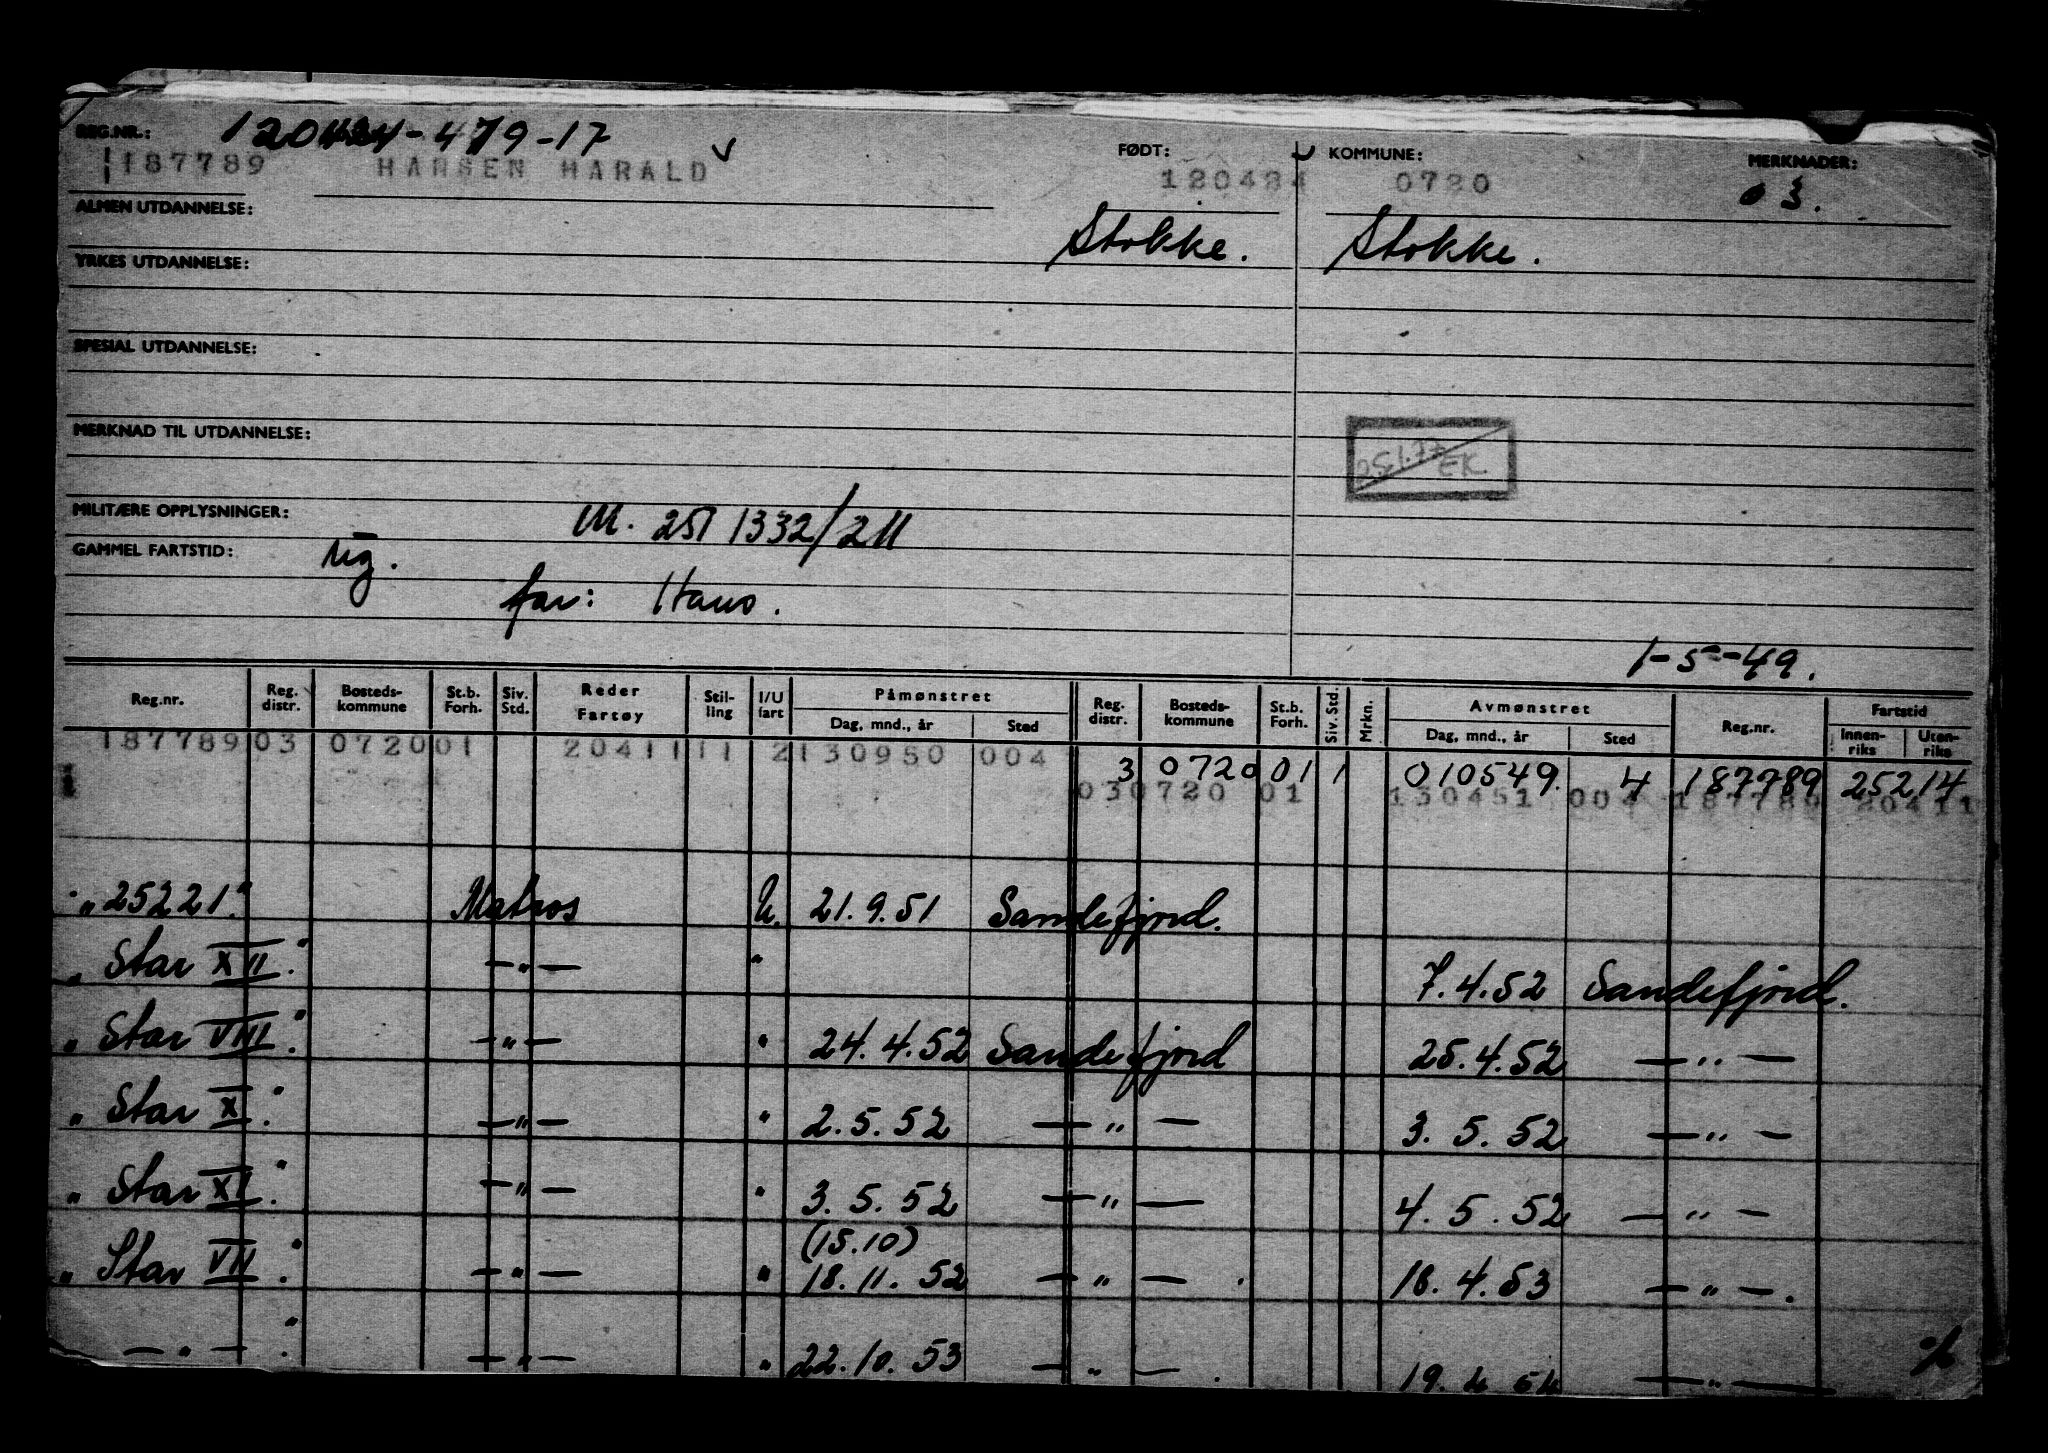 REG.NR.: 120424-479-17
187789 HANSEN HARALD FØDT: 120424 KOMMUNE: 0720 MERKNADER: 03.
ALMEN UTDANNELSE:
Stokke. Stokke.
YRKES UTDANNELSE:
SPESIAL UTDANNELSE:
MERKNAD TIL UTDANNELSE:
25.1.77 EK
MILITÆRE OPPLYSNINGER: M. 251 1332/211
GAMMEL FARTSTID: reg.
far: Hans.
1-5-49.
Reg.nr. Reg. distr. Bosteds-kommune St.b. Forh. Siv. Std. Reder Fartøy Stil-ling I/U fart Påmønstret Dag, mnd., år Sted Reg. distr. Bosteds-kommune St.b. Forh. Siv. Std. Mrkn. Avmønstret Dag, mnd., år Sted Reg.nr. Fartstid Innen-riks Uten-riks
187789 03 0720 01 20411 11 2 130950 004
3 0720 01 1 010549. 4 187789 25214
03 0720 01 130451 004 187789 20411
"25221" Matros U. 21.9.51 Sandefjord.
"Star XII". —"— " 7.4.52 Sandefjord.
"Star VIII". —"— " 24.4.52 Sandefjord 25.4.52 —"—
"Star X". —"— " 2.5.52 —"— 3.5.52 —"—
"Star XI". —"— " 3.5.52 —"— 4.5.52 —"—
(15.10)
"Star VII". —"— " 18.11.52 —"—. 18.4.53 —"—.
—"—". —"— " 22.10.53 —"—. 19.4.54 —"—
%